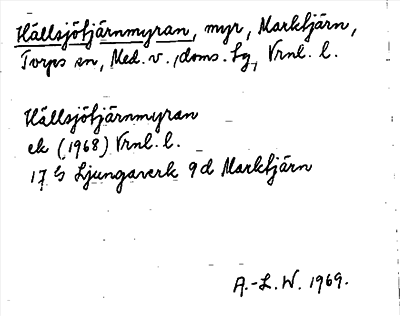 Hällsjötjärnmyran, myr, Marktjärn,
Torps sn, Med. v., doms. hg, Vrnl. l.
Hällsjötjärnmyran
ek (1968) Vrnl. l.
17 G Ljungaverk 9d Marktjärn
A.-L. W. 1969.